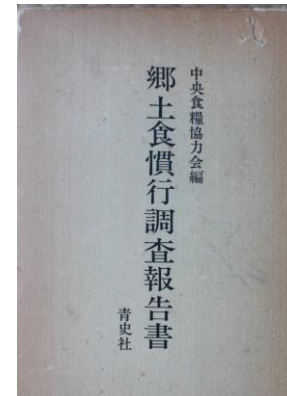 中央食糧協力会編
郷土食慣行調査報告書
青史社